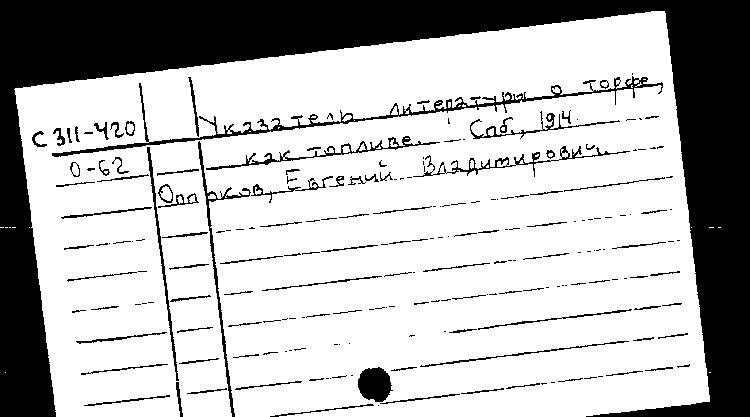 С 311-420 Указатель литературы о торфе,
0-62 как топливе. Спб., 1914.
Оппоков, Евгений Владимирович.